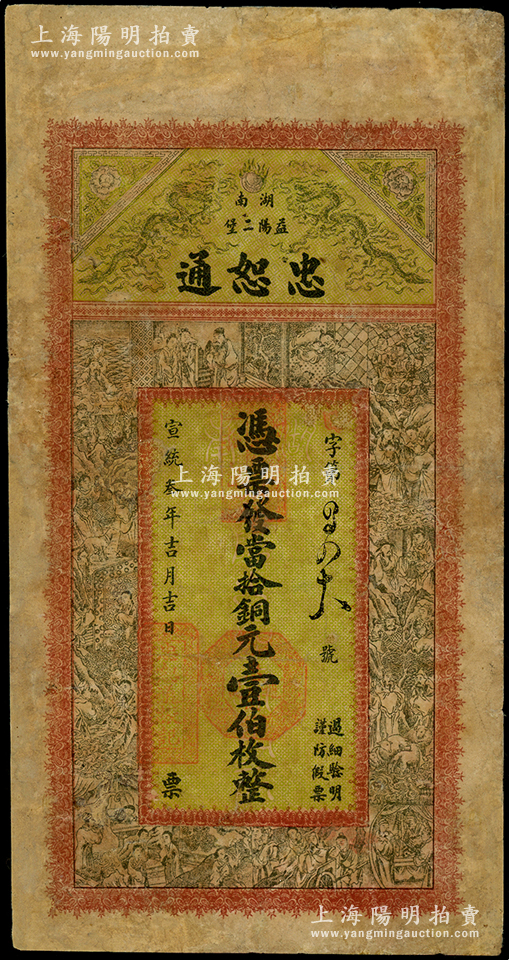 上海陽明拍賣
www.yangmingauction.com
湖南
益陽二堡
忠恕通
字第
號
過細驗明
謹防假票
憑票發當拾銅元壹伯枚整
宣統叁年吉月吉日
票
上海陽明拍賣
www.yangmingauction.com
上海陽明拍賣
www.yangmingauction.com